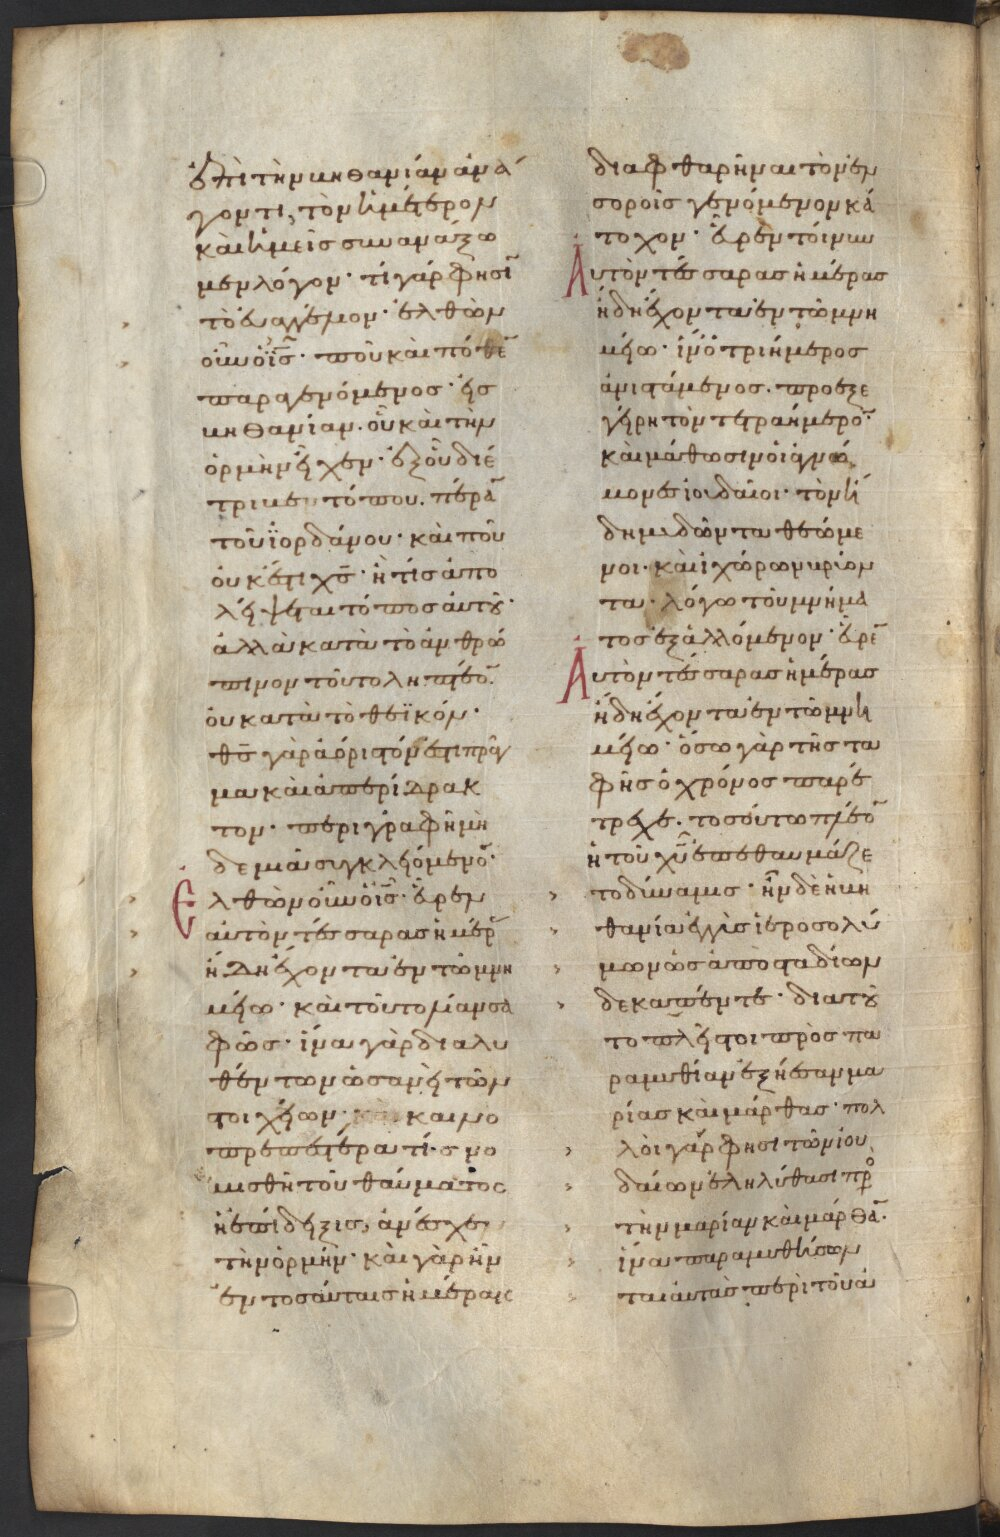 ἐπὶ τὴν βηθανίαν ἀνά
γοντι, τὸν ἡμέτερον
καὶ ἡμεῖς συναυάξω
μεν λόγον· τί γάρ φησι
τὸ εὐαγγέλιον· ἐλθὼν
οὖν ὁ ις̅· ποῦ καὶ πόθε̅
παραγενόμενος· εἰς
βηθανίαν· οὗ καὶ τὴν
ὁρμὴν εἶχεν· ἐξ οὗ διέ
τριβεν τόπου· πέρα̅
τοῦ ϊορδάνου· καὶ ποῦ
οὐκ ἔστι χς̅· ἢ τίς ἀπο
λέψεται τόπος αὐτοῦ·
ἀλλὰ κατὰ τὸ ἀνθρώ
πινον τοῦτο ληπτέο̅·
οὐ κατὰ τὸ θεϊκόν·
θς̅ γὰρ ἀόριστόν ἐστι πρᾶγ
μα καὶ ἀπερίδρακ
τον· περιγραφῇ μὴ
δεμιᾷ συγκλειόμενο̅·
Ἐλθὼν οὖν ὁ ις̅· εὗρεν
αὐτὸν τέσσαρας ἡμέρ
ἤδη ἔχοντα ἐν τῷ μνη
μείω· καὶ τοῦτο λίαν σα
φῶς· ἵνα γὰρ διαλυ
θέντων ὡσανεὶ τῶν
στοιχείων· καὶ καινο
πρεπεστέρα τίς νο
μισθῆ τοῦ θαύματος
ἡ ἐπίδειξις, ἀνέσχε
τὴν ὁρμήν· καὶ γὰρ ἦν
ἐν τοσαύταις ἡμέραις
διαφθαρῆναι τὸν ἐν
σοροῖς γενόμενον κά
τοχον· εὗρεν τοίνυν
Αὐτὸν τέσσαρας ἡμέρας
ἤδη ἔχοντα ἐν τῷ μνη
μείω· ἵν' ὁ τριήμερος
ἀνιστάμενος· προεξε
γείρη τὸν τετραήμερο̅·
καὶ μάθωσιν οἱ ἀγνώ
μονες ἰουδαῖοι· τὸν ἤ
δη μυδῶντα θεώμε
νοι· καὶ ἰχώρων βρίον
τα· λόγω τοῦ μνήμα
τος ἐξαλλόμενον· εὗρε̅
Αὐτὸν τέσσαρας ἡμέρας
ἤδη ἔχοντα ἐν τῷ μνη
μείω· ὅσω γὰρ τῆς τα
φῆς ὁ χρόνος παρέ
τρεχε· τοσούτω πλέο̅
ἡ τοῦ χυ̅ ἐπεθαυμάζε
το δύναμις· ἦν δὲ ἡ βη
θανία ἐγγὺς ἱεροσολύ
μων ὡς ἀπὸ σταδίων
δεκαπέντε· διατοῦ
το πλεῖστοι πρὸς πα
ραμυθίαν ἐξήεσαν μα
ρίας καὶ μάρθας· πολ
λοὶ γάρ φησι τῶν ἰου
δαίων ἐληλύθασι πρὸ
τὴν μαρίαν καὶ μάρθα̅·
ἵνα παραμυθήσων
ται αὐτὰς περὶ τοῦ ἀ